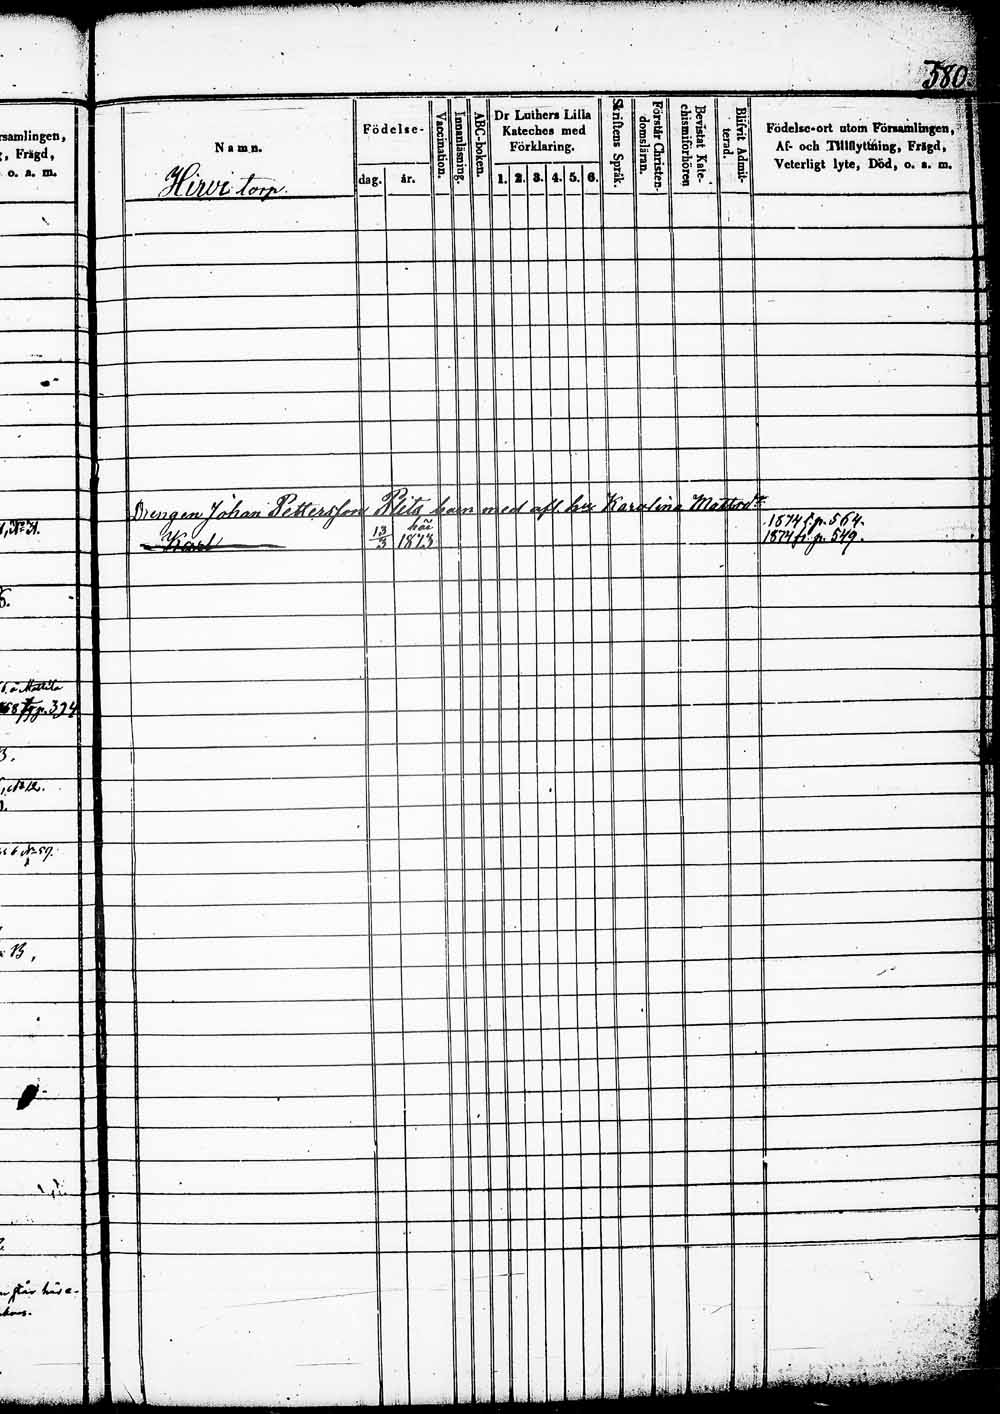 580
rsamlingen,
g, Frägd,
o. a. m.
Namn.
Hirvi torp.
Födelse-
dag. år.
Vaccination.
Innanläsning.
ABC-boken.
Dr Luthers Lilla
Kateches med
Förklaring.
1. 2. 3. 4. 5. 6.
Skriftens Språk.
Förstår Christen-
domsläran.
Bevistat Kate-
chismiförhören
Blifvit Admit-
terad.
Födelse-ort utom Församlingen,
Af- och Tillflyttning, Frägd,
Veterligt lyte, Död, o. s. m.
Drengen Johan Pettersson barn med afl. hu Karolina Mattsdr
1874 f. p. 564.
Karl 13/3 här 1873 1874 fl. p. 549.
Mattila
p. 324
No 12.
6 No 59.
B,
står här a-